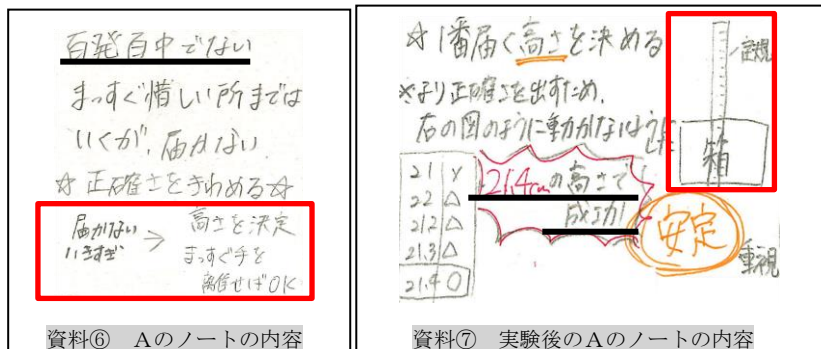 百発百中でない
まっすぐ惜しい所までは
いくが、届かない
☆正確さをきわめる☆
届かない
いきすぎ
→
高さを決定
まっすぐ手を
離せばOK
資料⑥ Aのノートの内容
☆1番届く高さを決める
※より正確さを出すため、
右の図のように動かないように
した
定規
箱
21 ×
22 △
21.2 △
21.3 △
21.4 ○
21.4cmの高さで
成功
安定
重視
資料⑦ 実験後のAのノートの内容